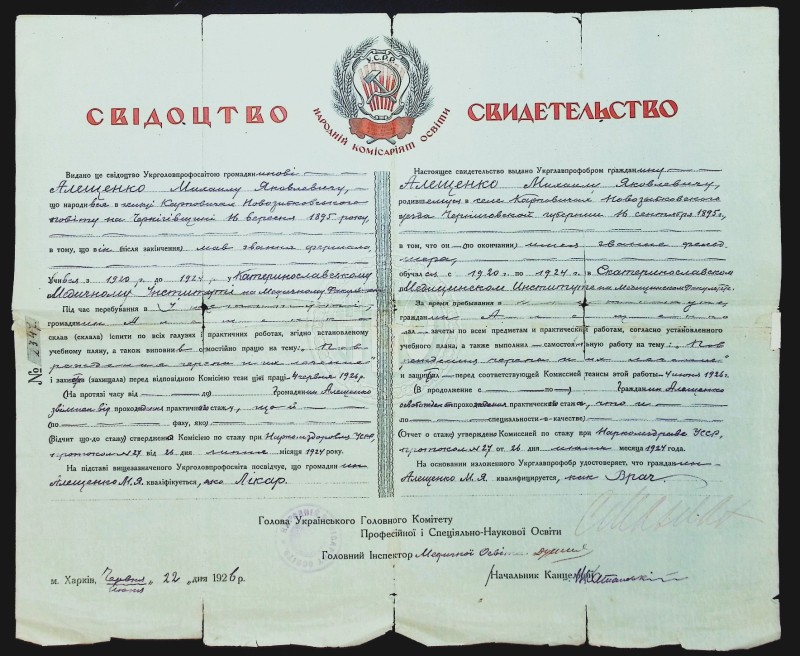 У.С.Р.Р.
НАРОДНІЙ КОМІСАРІЯТ ОСВІТИ
СВІДОЦТВО
Видано це свідоцтво Укрголовпрофосвітою громадянинові
Алещенко Михаилу Яковлевичу,
що народився в селищі Карповичах Новозыбковського
повіту на Чернігівщині 16 вересня 1895 року,
в тому, що він (після закінчення) мав звання фершала,
учився з 1920 р. до 1924 р. у Катеринославському
Медичному Інституті на Медичному
Під час перебування в
громадянин
склав (склала) іспити по всіх галузях і практичних роботах, згідно встановленому
учебному пляну, а також виповнив самостійно працю на тему: „По-
і захищав (защищала) перед відповідною Комісією тези ціні праці 4 червня 1926 р.
(На протязі часу від до ) Громадянин Алещенко
звільнен від проходження практичного стажу, що й
(по фаху, яко)
(Відчит що-до стажу) ствердженна Комісію по стажу при Наркомздоровля УСРР,
протокол №27 від 26 дня липня місяця 1924 року.
На підставі вищезазначеного Укрголовпрофосвіта посвідчує, що громадянин
Алещенко М.Я. кваліфікується, яко Лікар.
№ 2347
СВИДЕТЕЛЬСТВО
Настоящее свидетельство выдано Укрглавпрофобром гражданину
Алещенко Михаилу Яковлевичу,
родившемуся в селе Карповичах Новозыбковского
уезда Черниговской губернии 16 сентября 1895 г.,
в том, что он (по окончании) имел звание фельд-
шера,
обучался с 1920 г. по 1924 г. в Екатеринославском
Медицинском Институте на Медицинском
За время пребывания в
гражданин
сдал зачеты по всем предметам и практическим работам, согласно установленного
учебного плана, а также выполнил самостоятельную работу на тему: „По-
вреждения черепа и их лечение“
и защищал перед соответствующей Комиссией тезисы этой работы 4 июня 1926 г.
(В продолжение с по ) Гражданин Алещенко
освобожден прохождения практического стажа, что и
(по специальности в качестве)
(Отчет о стаже) утвержден Комиссией по стажу при Наркомздраве УССР,
протокол №27 от 26 дня июля месяца 1924 года.
На основании изложенного Укрглавпрофобр удостоверяет, что гражданин
Алещенко М.Я. квалифицируется, как Врач.
Голова Українського Головного Комітету
Професійної і Спеціяльно-Наукової Освіти
Головний Інспектор Медичної Освіти
м. Харків, Червня / Июня „22„ дня 1926 р.
Начальник Канцелярії